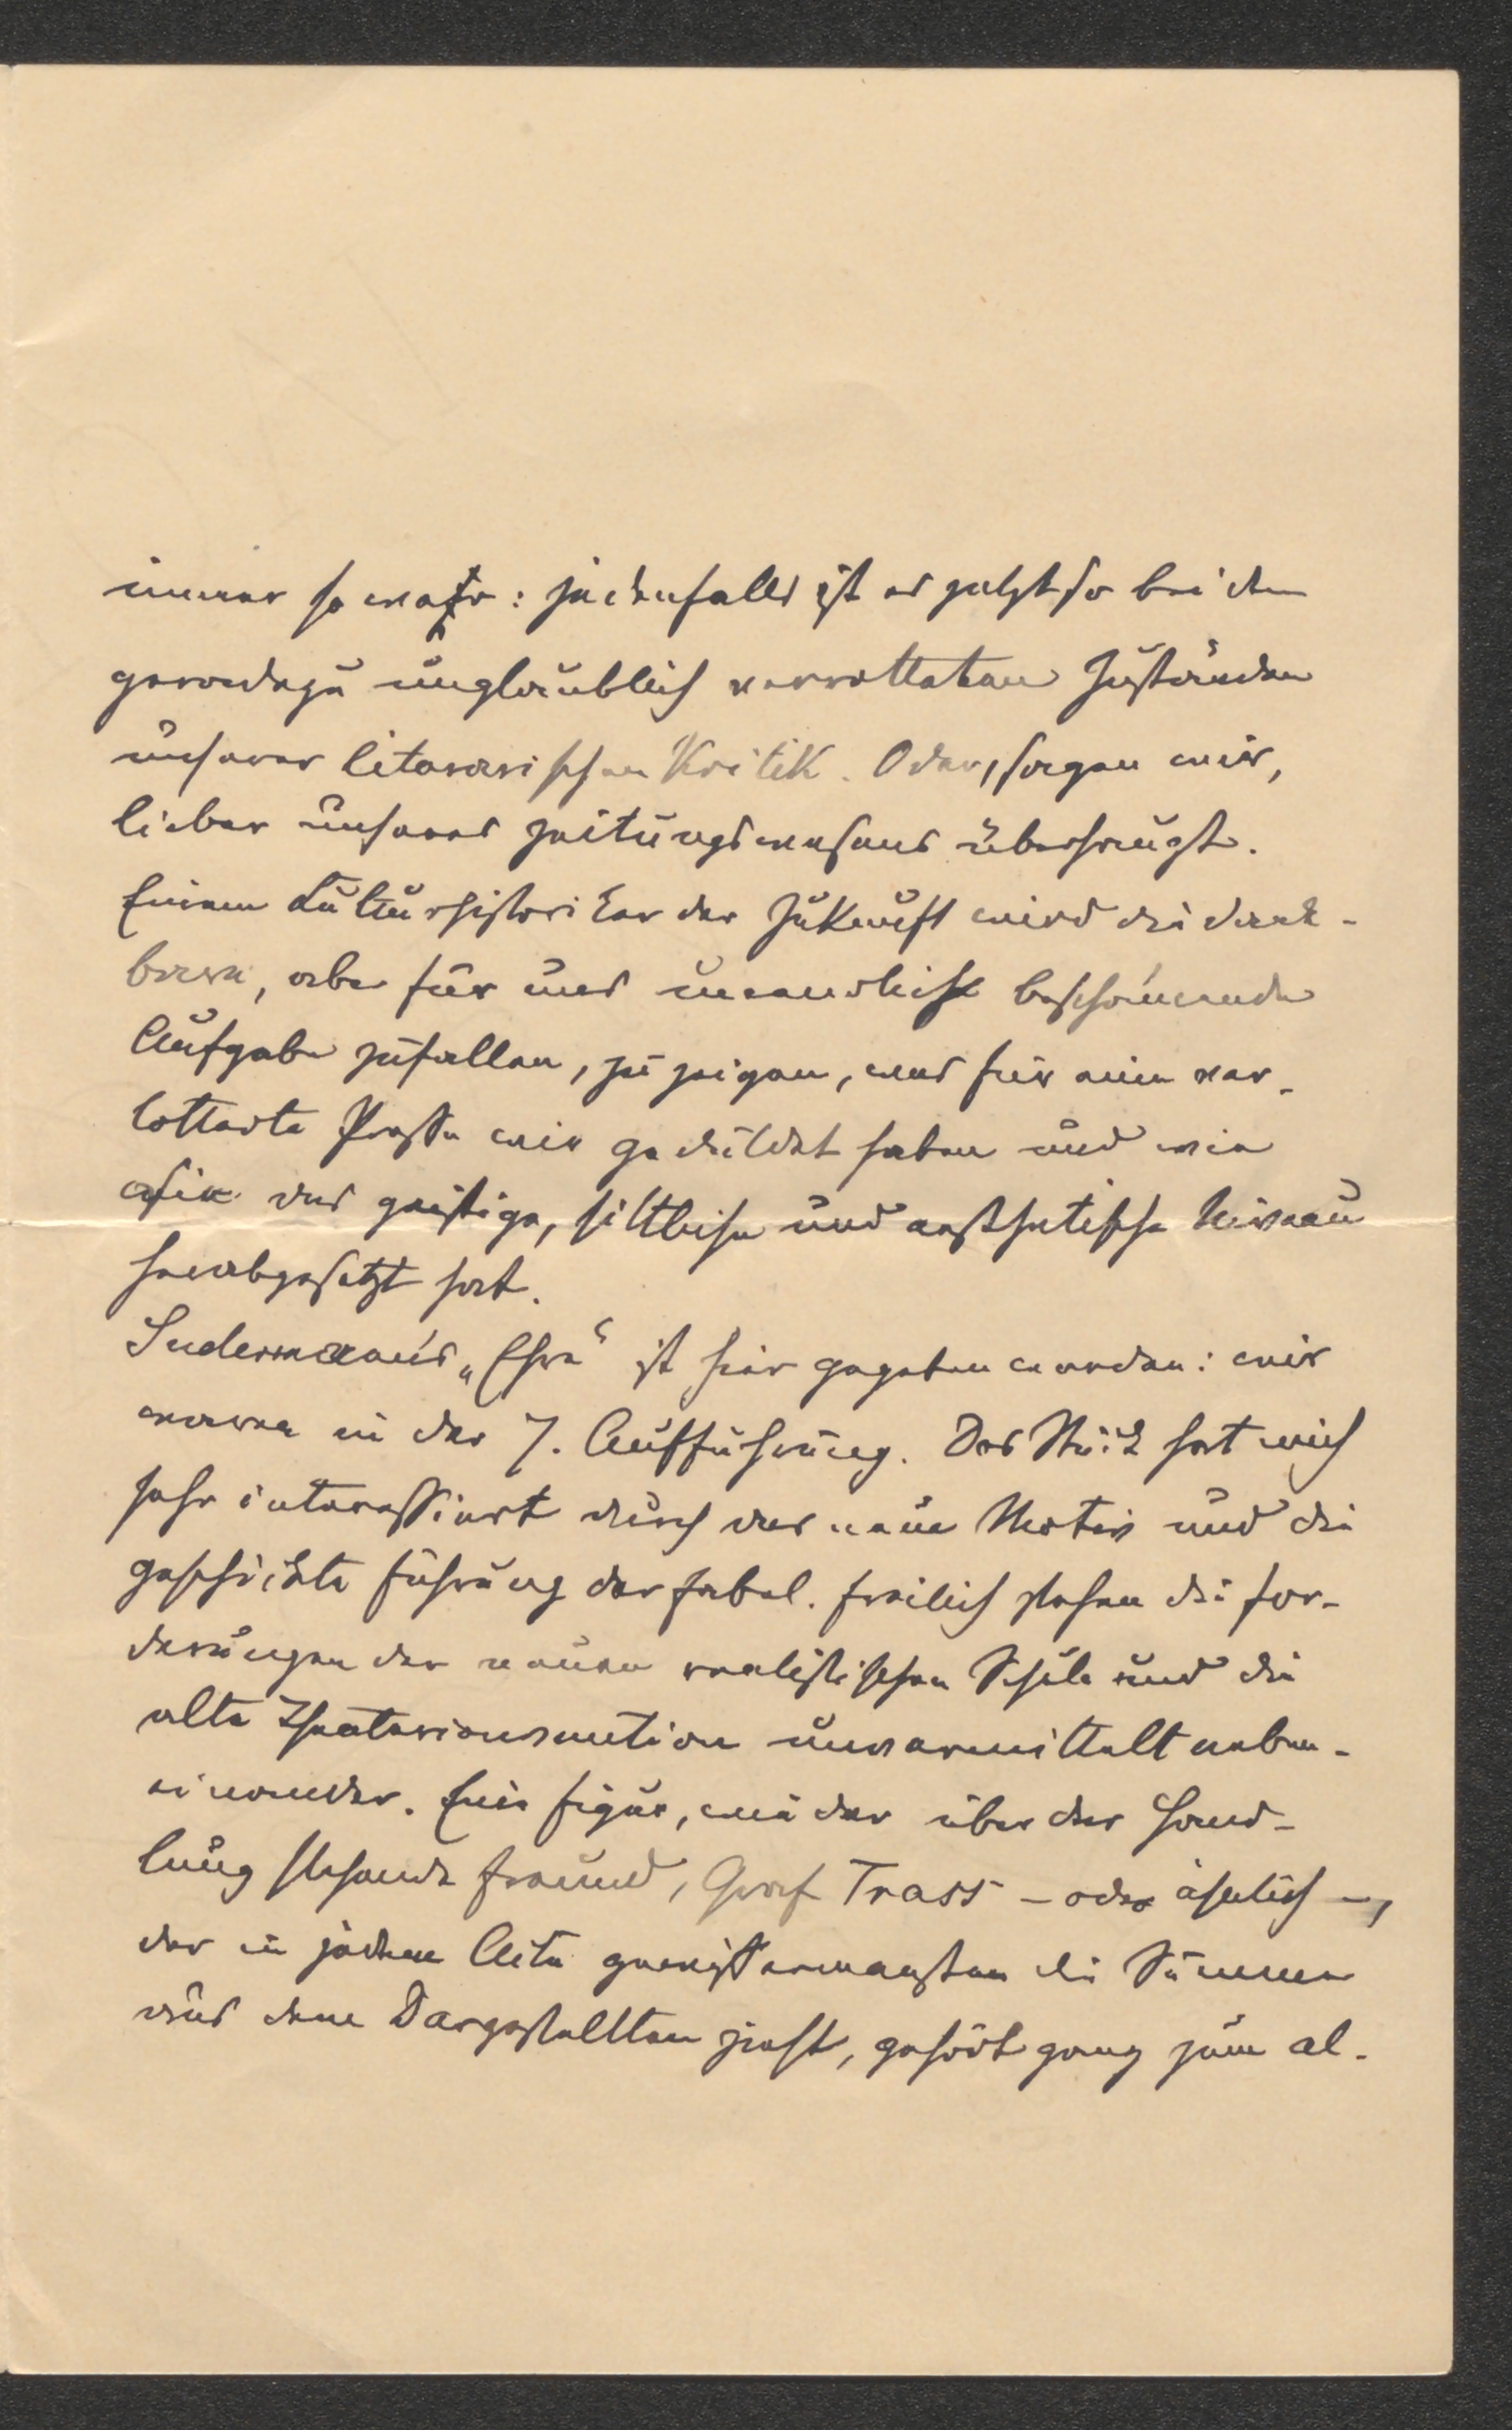 immer so war: jedenfalls ist es jetzt so bei den
geradezu unglaublich verrotteten Zuständen
unserer literarischen Kritik. Oder, sagen wir,
lieber unseres Zeitungswesens überhaupt.
Einem Kulturhistoriker der Zukunft wird die dank-
bare, aber für uns unendlich beschämende
Aufgabe zufallen, zu zeigen, was für eine ver-
lotterte Presse wir geduldet haben und wie
sie das geistige, sittliche und aesthetische Niveau
herabgesetzt hat.
Sudermann's „Ehre“ ist hier gegeben worden: wir
waren in der 7. Aufführung. Das Stück hat mich
sehr interessiert durch das neue Motiv und die
geschickte Führung der Fabel. Freilich stehen die For-
derungen der neuen realistischen Schule und die
alte Theaterconvention unvermittelt neben-
einander. Eine Figur, wie der über der Hand-
lung stehende Freund, Graf Trass – oder ähnlich –,
der in jedem Akte gewissermaßen die Summe
aus dem Dargestellten zieht, gehört ganz zum al-